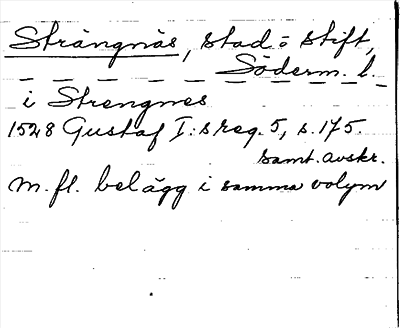 Strängnäs, stad o stift,
Söderm. l.
i Strengnes
1528 Gustaf I:s reg. 5, s. 175.
samt. avskr.
m. fl. belägg i samma volym